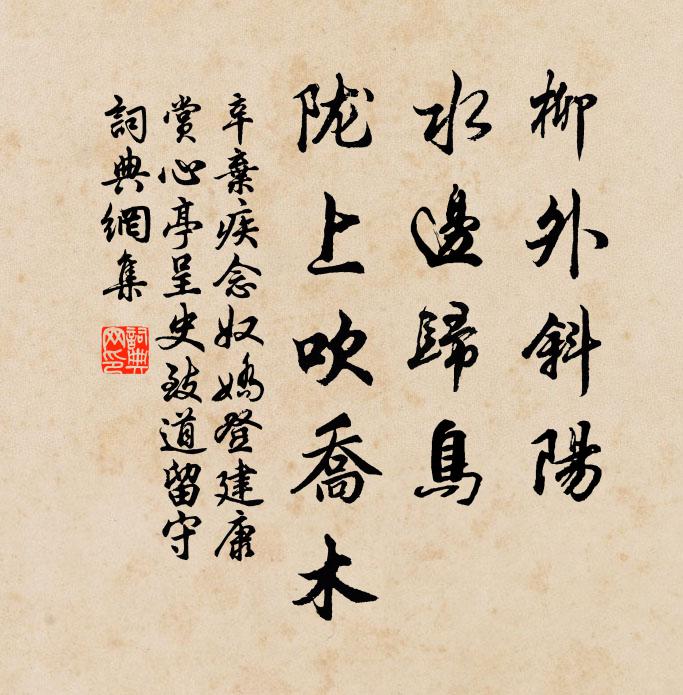 柳外斜陽
水邊歸鳥
陇上吹喬木
辛棄疾念奴嬌登建康
賞心亭呈史致道留守
詞典網集
詞典网印